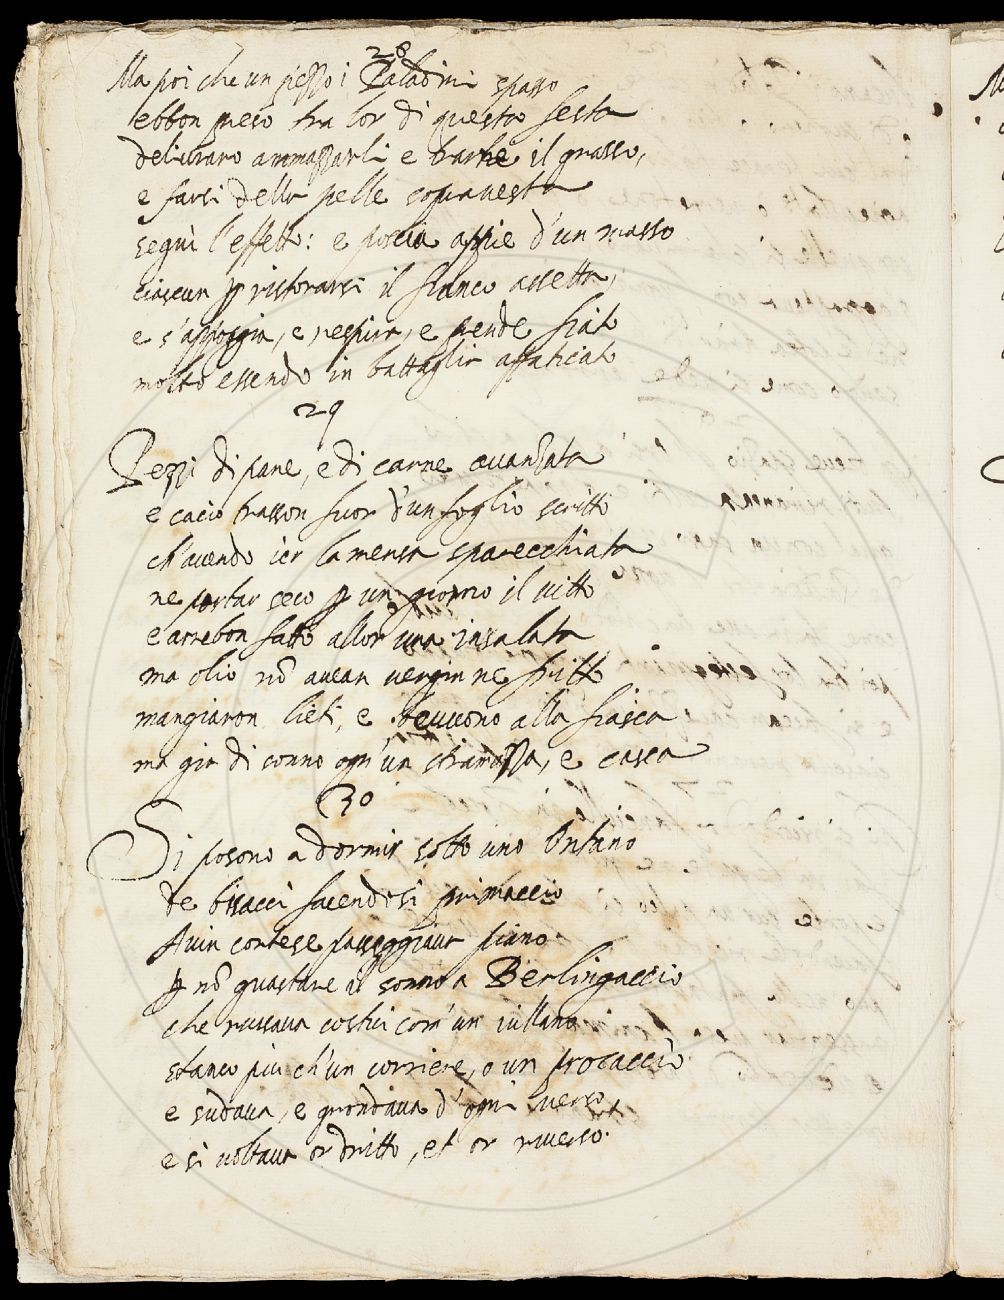 28
Ma poi che un pezzo i Paladini spasso
ebbon preso tra lor di questa festa
deliberaro ammazzarli e trarne il grasso,
e farsi della pelle sopravesta
seguì l'effetto: e poscia appie d'un masso
ciascun p ristorarsi il fianco assetta,
e s'appoggia, e respira, e prende fiato
molto essendo in battaglia affaticato
29
Pezzi di pane, e di carne avanzata
e cacio trasson fuor d'un foglio scritto
ch'avendo ier la mensa sparecchiata
ne portar seco p un giorno il vitto
e arrebon fatto allor una insalata
ma olio nõ avean vergin ne fritto
mangiaron lieti, e bevvono alla fiasca
ma già di sonno ogn'un stramazza, e casca
30
Si posono a dormir sotto uno Ontano
de bisacci facendosi primaccio
Avin cortese passeggiava piano
p nõ guastare il sonno a Berlingaccio
che russava costui com'un villano
stanco più ch'un corriere, o un procaccio
e sudava, e grondava d'ogni verso
e si voltava or dritto, et or riverso.